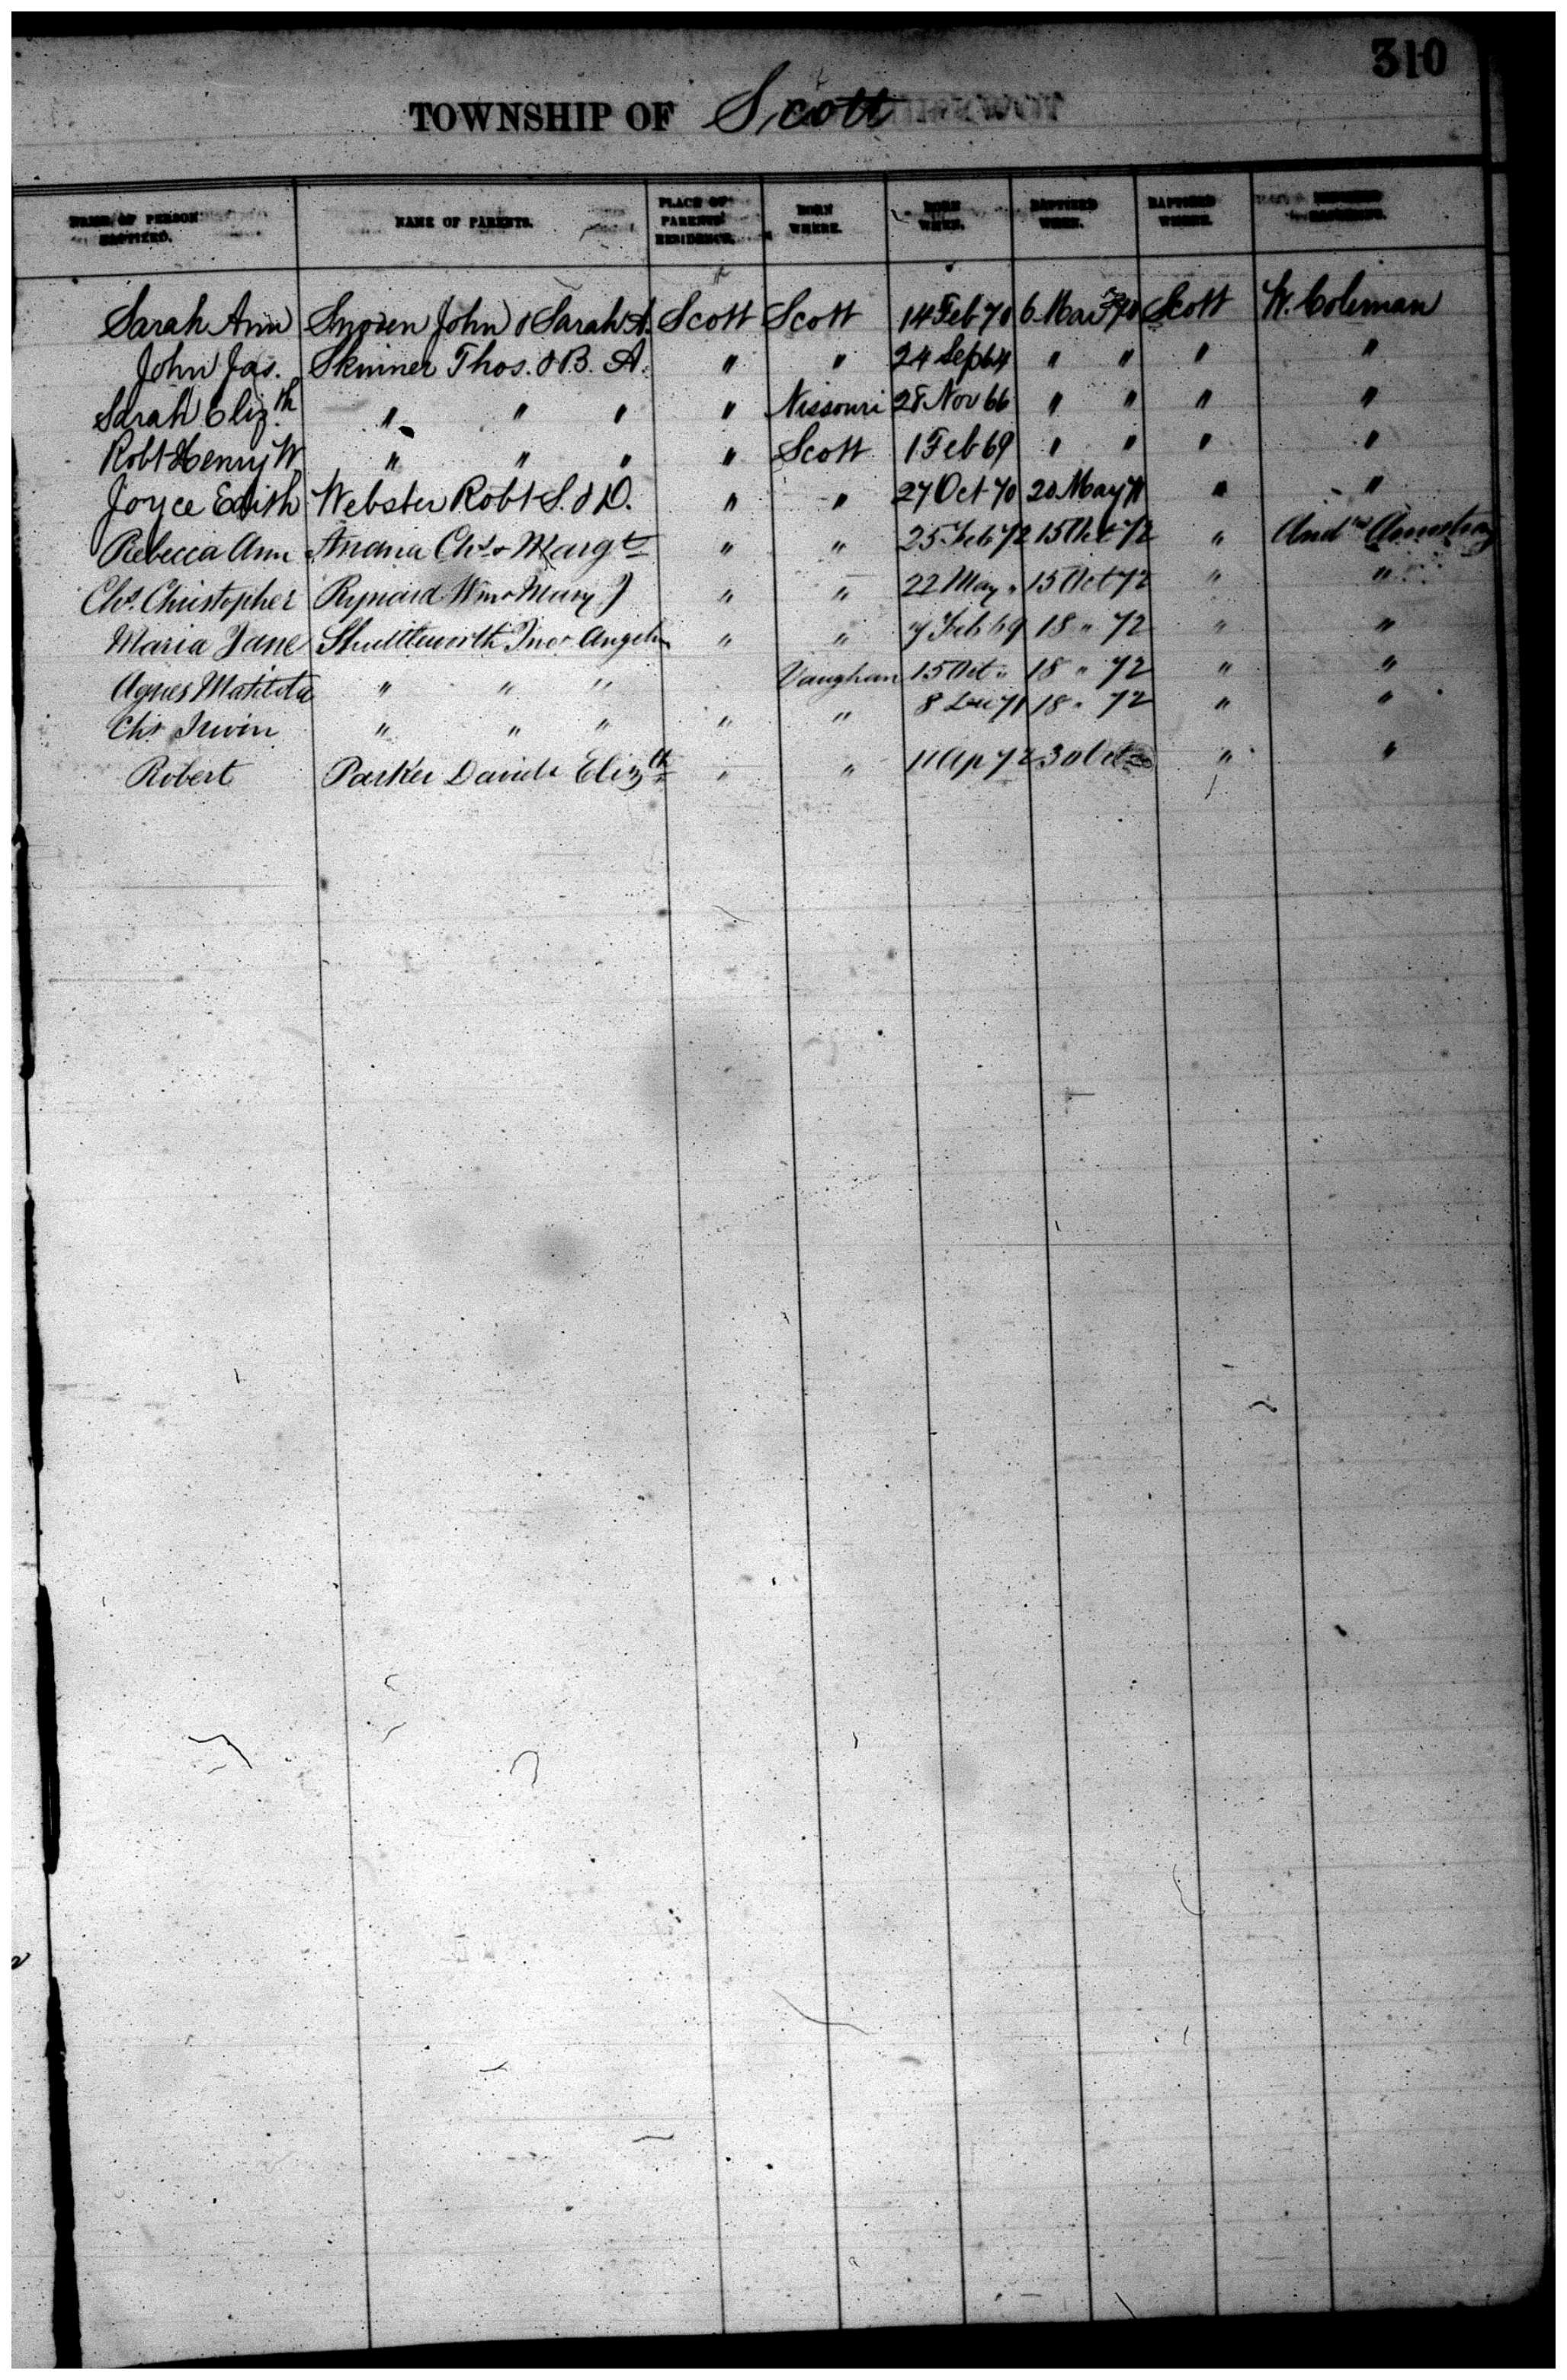 310
TOWNSHIP OF Scott
NAME OF PERSON BAPTIZED. NAME OF PARENTS. PLACE OF PARENTS' RESIDENCE. BORN WHERE. BORN WHEN. BAPTIZED WHEN. BAPTIZED WHERE.
Sarah Ann John & Sarah A. Scott Scott 14 Feb 70 6 Mar 70 Scott W. Coleman
John Jas. Skinner Thos. & B. A. " " 24 Sep 64 " " " "
Sarah Eliz.th " " " " Nissouri 28 Nov 66 " " " "
Robt Henry W " " " " Scott 1 Feb 69 " " " "
Joyce Edith Webster Robt S. & D. " " 27 Oct 70 20 May 71 " "
Rebecca Ann Chs & Margt " " 25 Feb 72 15 Oct 72 " Andw Armstrong
Chs. Christopher Rynard Wm & Mary J " " 22 May " 15 Oct 72 " "
Maria Jane Shuttleworth Jno & " " 7 Feb 69 18 " 72 " "
Agnes Matilda " " " Vaughan 15 Oct " 18 " 72 " "
Chs Irwin " " " " " 8 Dec 71 18 " 72 " "
Robert Parker David & Elizth " " 11 Ap 72 30 Oct " "